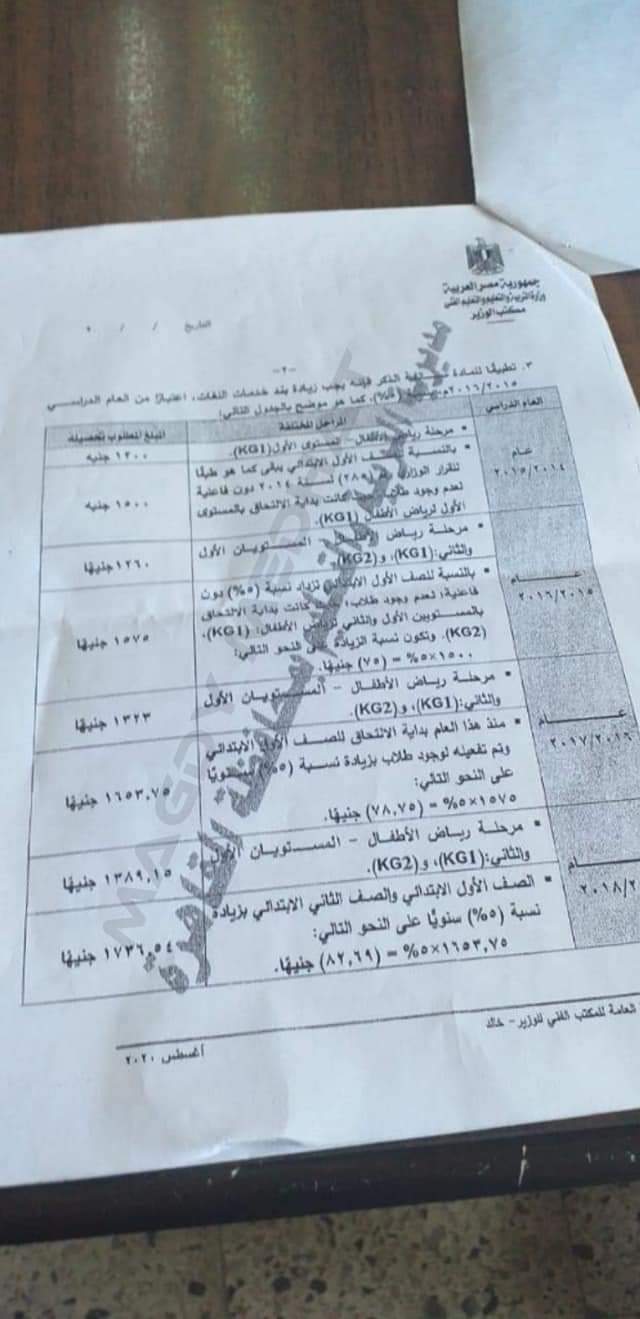 جمهورية مصر العربية
وزارة التربية والتعليم والتعليم الفنى
مكتب الوزير
التاريخ / /
-٢-
٣. تطبيقًا للمادة الذكر فإنه يجب زيادة بند خدمات اللغات، اعتبارًا من العام الدراسي
٢٠١٦/٢٠١٥م (٥%)، كما هو موضح بالجدول التالي:
العام الدراسي
المراحل المختلفة
المبلغ المطلوب تحصيله
عام
٢٠١٥/٢٠١٤
• مرحلة رياض الأطفال – المستوى الأول(KG1).
١٢٠٠ جنيه
• بالنسبة للصف الأول الابتدائي يبقى كما هو طبقًا
للقرار الوزاري لسنة ٢٠١٤ دون فاعلية
لعدم وجود كانت بداية الالتحاق بالمستوى
الأول لرياض الأطفال (KG1).
١٥٠٠ جنيه
عــــام
٢٠١٦/٢٠١٥
• مرحلة رياض الأطفال – المستويان الأول
والثاني:(KG1)، و(KG2).
١٢٦٠ جنيهًا
• بالنسبة للصف الأول الابتدائي تزداد نسبة (٥%) دون
فاعلية؛ لعدم وجود طلاب، كانت بداية الالتحاق
بالمستويين الأول والثاني لرياض الأطفال: (KG1)،
(KG2). وتكون نسبة الزيادة على النحو التالي:
١٥٠٠×٥% = (٧٥) جنيهًا.
١٥٧٥ جنيهًا
عــــام
٢٠١٧/٢٠١٦
• مرحلة رياض الأطفال – المستويان الأول
والثاني:(KG1)، و(KG2).
١٣٢٣ جنيهًا
• منذ هذا العام بداية الالتحاق للصف الأول الابتدائي
وتم تفعيله لوجود طلاب بزيادة نسبة (٥%) سنويًا
على النحو التالي:
١٥٧٥×٥% = (٧٨,٧٥) جنيهًا.
١٦٥٣,٧٥ جنيهًا
ـــام
٢٠١٨/٢
• مرحلة رياض الأطفال – المستويان الأول
والثاني:(KG1)، و(KG2).
١٣٨٩,١٥ جنيهًا
• الصف الأول الابتدائي والصف الثاني الابتدائي بزيادة
نسبة (٥%) سنويًا على النحو التالي:
١٦٥٣,٧٥×٥% = (٨٢,٦٩) جنيهًا.
١٧٣٦,٥٤ جنيهًا
العامة للمكتب الفني للوزير– خالد
أغسطس ٢٠٢٠
مديرية التربية والتعليم بمحافظة القاهرة
MAGDY